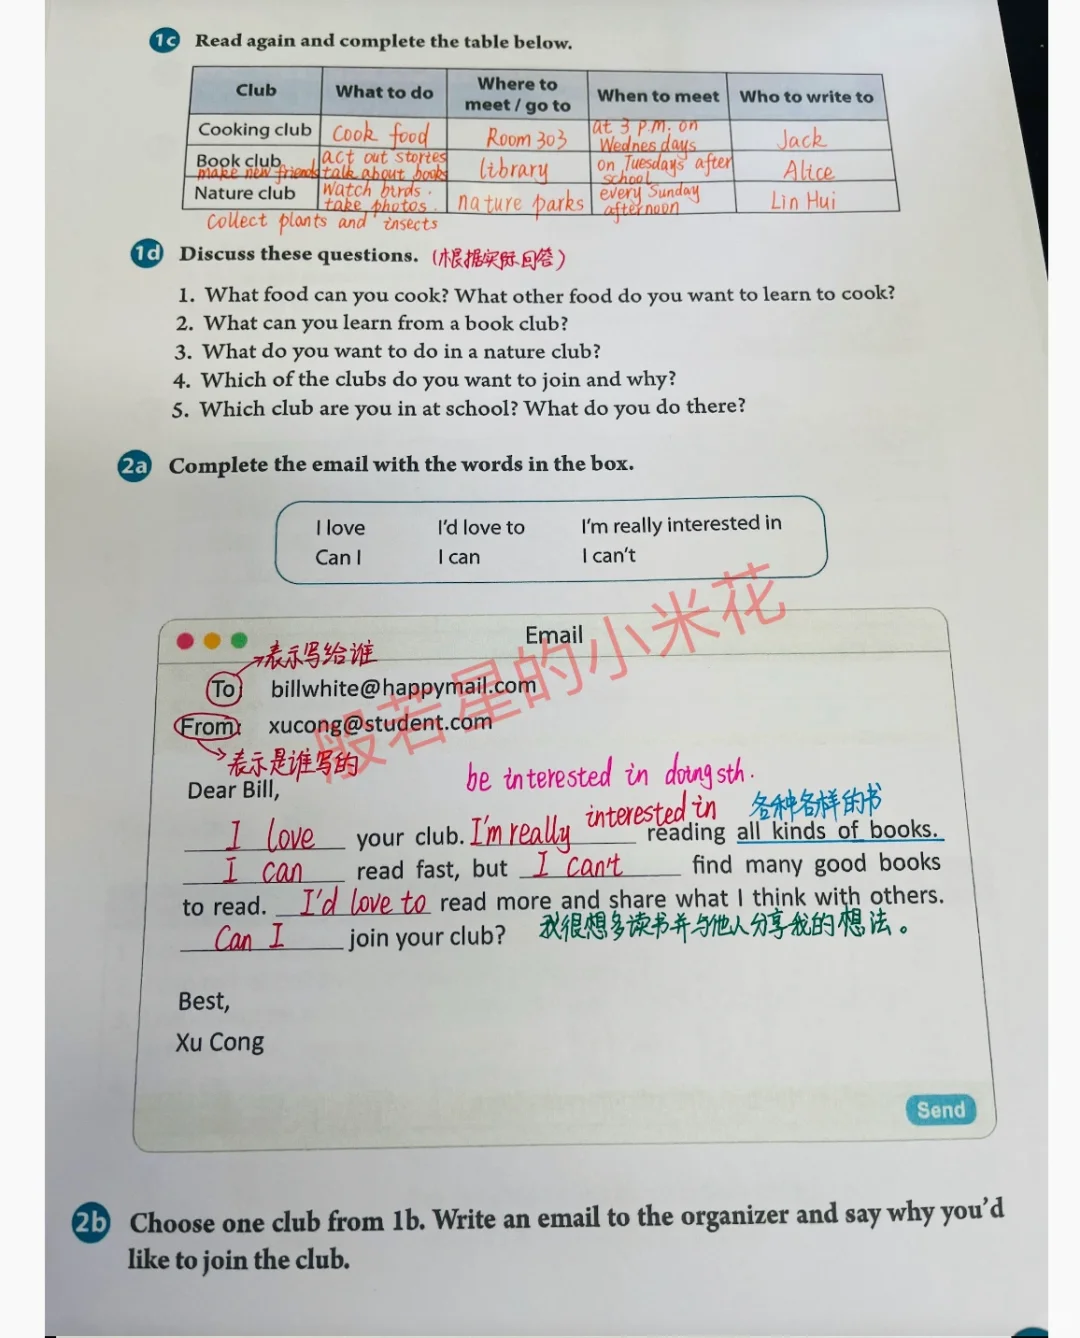 1c Read again and complete the table below.
Club What to do Where to meet / go to When to meet Who to write to
Cooking club cook food Room 303 at 3 p.m. on Wednesdays Jack
Book club act out stories talk about books make new friends library on Tuesdays after school Alice
Nature club watch birds. take photos. nature parks every Sunday afternoon Lin Hui
collect plants and insects
1d Discuss these questions. (根据实际回答)
1. What food can you cook? What other food do you want to learn to cook?
2. What can you learn from a book club?
3. What do you want to do in a nature club?
4. Which of the clubs do you want to join and why?
5. Which club are you in at school? What do you do there?
2a Complete the email with the words in the box.
I love I'd love to I'm really interested in
Can I I can I can't
Email
表示写给谁
To billwhite@happymail.com
From: xucong@student.com
表示是谁写的
般若星的小米花
Dear Bill,
be interested in doing sth.
各种各样的书
I love your club. I'm really interested in reading all kinds of books.
I can read fast, but I can't find many good books
to read. I'd love to read more and share what I think with others.
Can I join your club? 我很想多读书并与他人分享我的想法。
Best,
Xu Cong
Send
2b Choose one club from 1b. Write an email to the organizer and say why you'd
like to join the club.